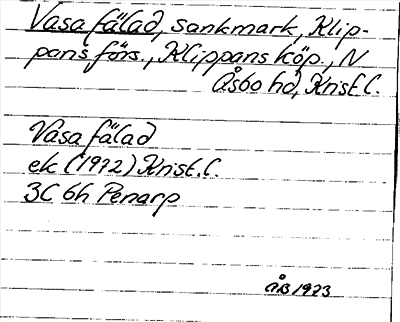 Vasa fälad, sankmark, Klip-
pans förs., Klippans köp., N
Åsbo hd, Krist.l.
Vasa fälad
ek (1972) Krist.l.
3C 6h Perarp
ÅB 1973